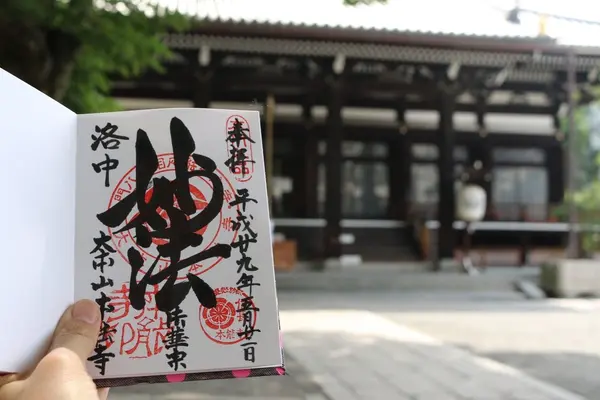 奉拝
平成廿九年五月廿一日
妙法
法華宗
洛中
大本山本能寺